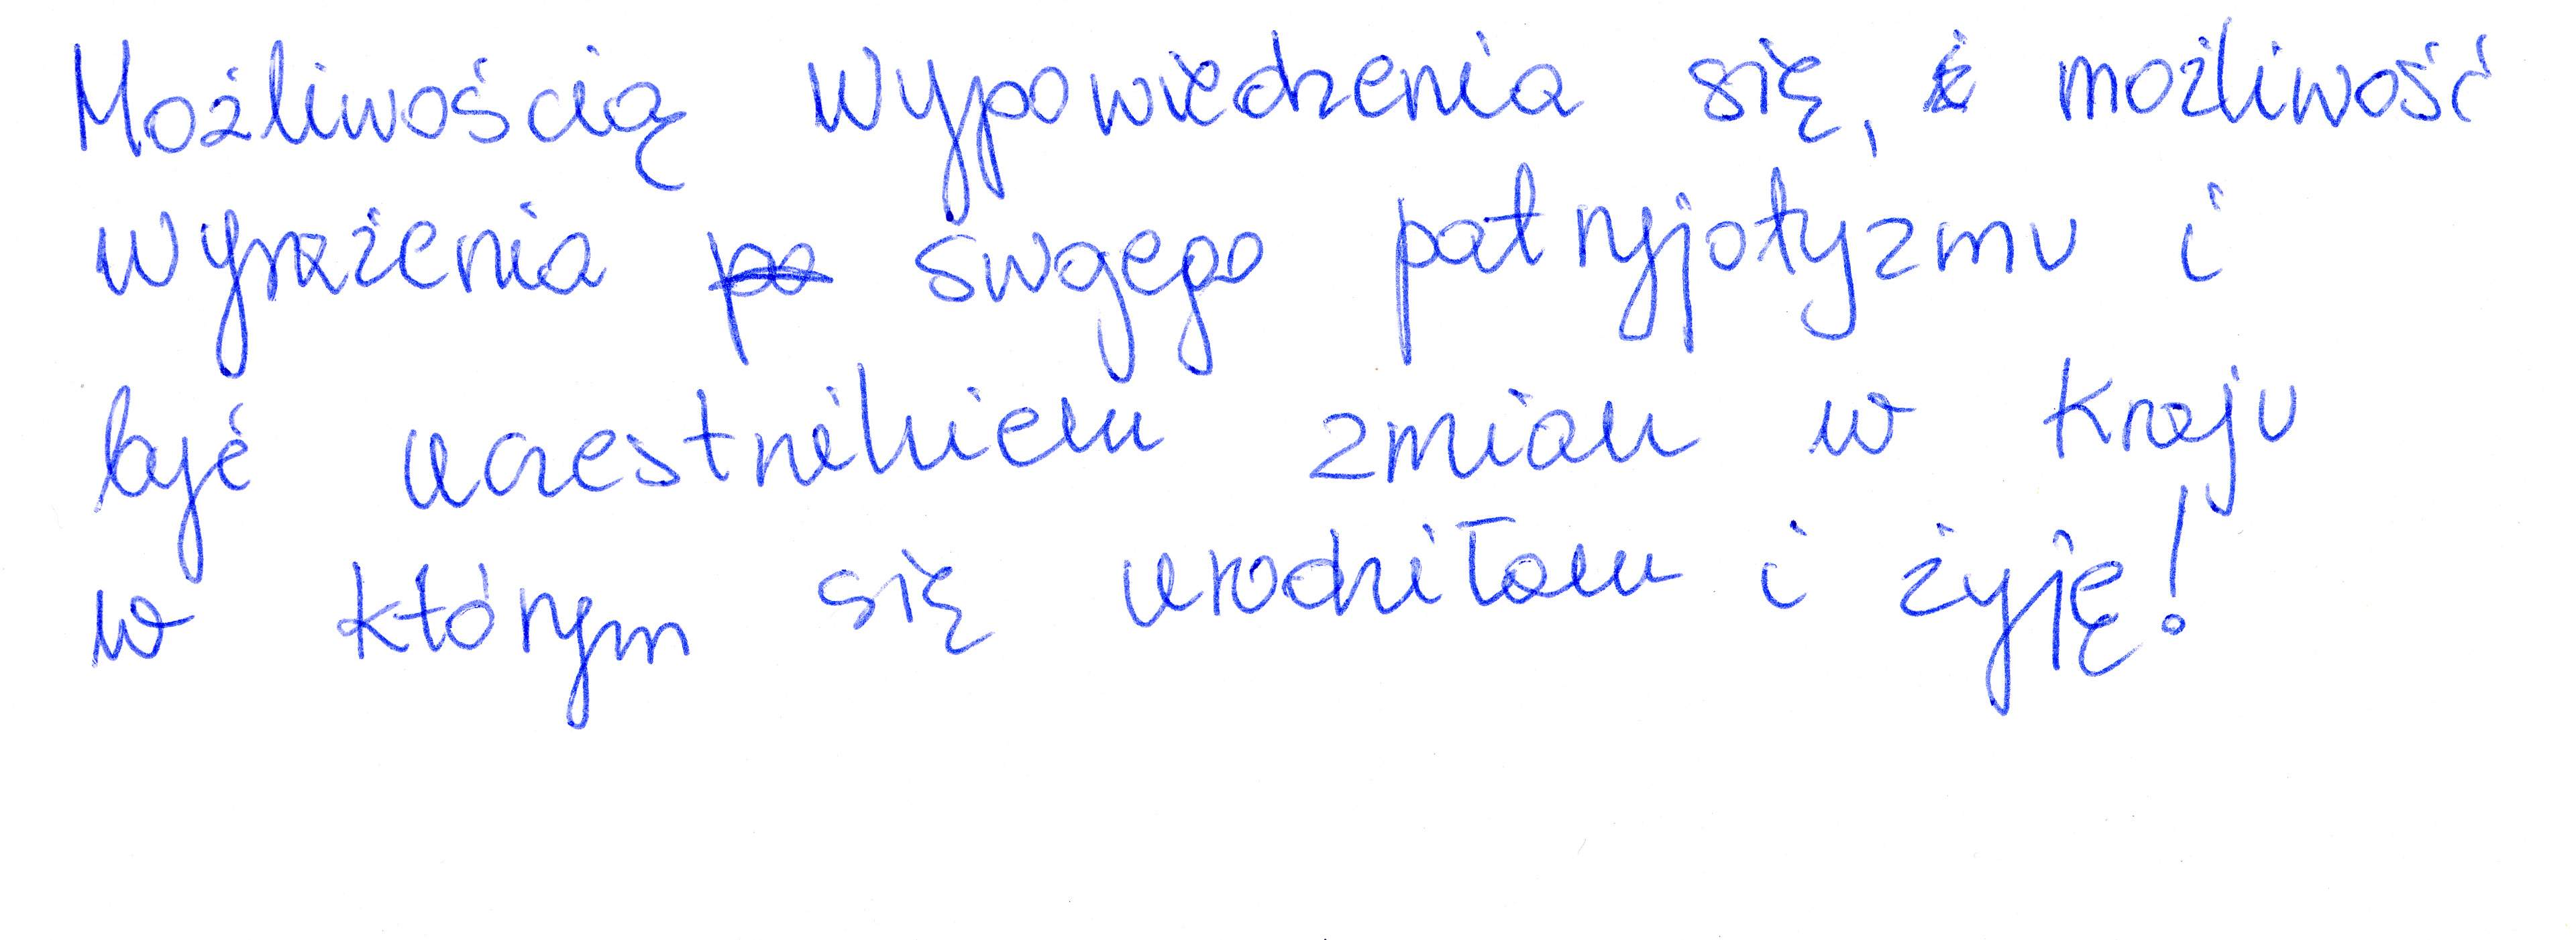 Możliwością wypowiedzenia się, i możliwość
wyrażenia po swojego patryjotyzmu i
być uczestnikiem zmian w kraju
w którym się urodziłam i żyję!